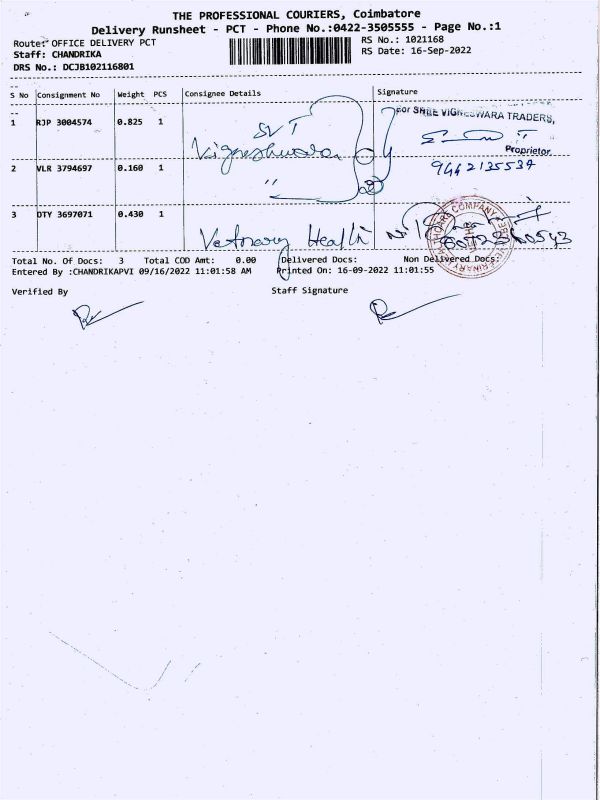 THE PROFESSIONAL COURIERS, Coimbatore
Delivery Runsheet - PCT - Phone No.:0422-3505555 - Page No.:1
Route: OFFICE DELIVERY PCT
RS No.: 1021168
Staff: CHANDRIKA
RS Date: 16-Sep-2022
DRS No.: DCJB102116801
S No Consignment No Weight PCS Consignee Details Signature
1 RJP 3004574 0.825 1 SVT
For SHREE VIGNESWARA TRADERS,
Vigneshwara
Proprietor
2 VLR 3794697 0.160 1 "
9442135537
2
3 DTY 3697071 0.430 1 Vetornary Health
Total No. Of Docs: 3 Total COD Amt: 0.00 Delivered Docs: Non Delivered Docs:
Entered By :CHANDRIKAPVI 09/16/2022 11:01:58 AM Printed On: 16-09-2022 11:01:55
Verified By Staff Signature